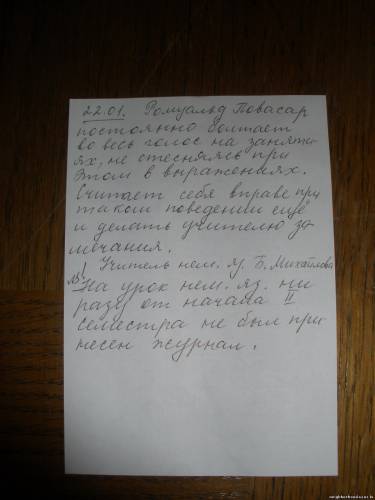 22.01. Ромуальд Повасар
постоянно болтает
во весь голос на заняти-
ях, не стесняясь при
этом в выражениях.
Считает себя вправе при
таком поведении ещё
и делать учителю за-
мечания.
Учитель нем. яз. Б. Михайлова
На урок нем. яз. ни
разу от начала II
семестра не был при-
несен журнал.